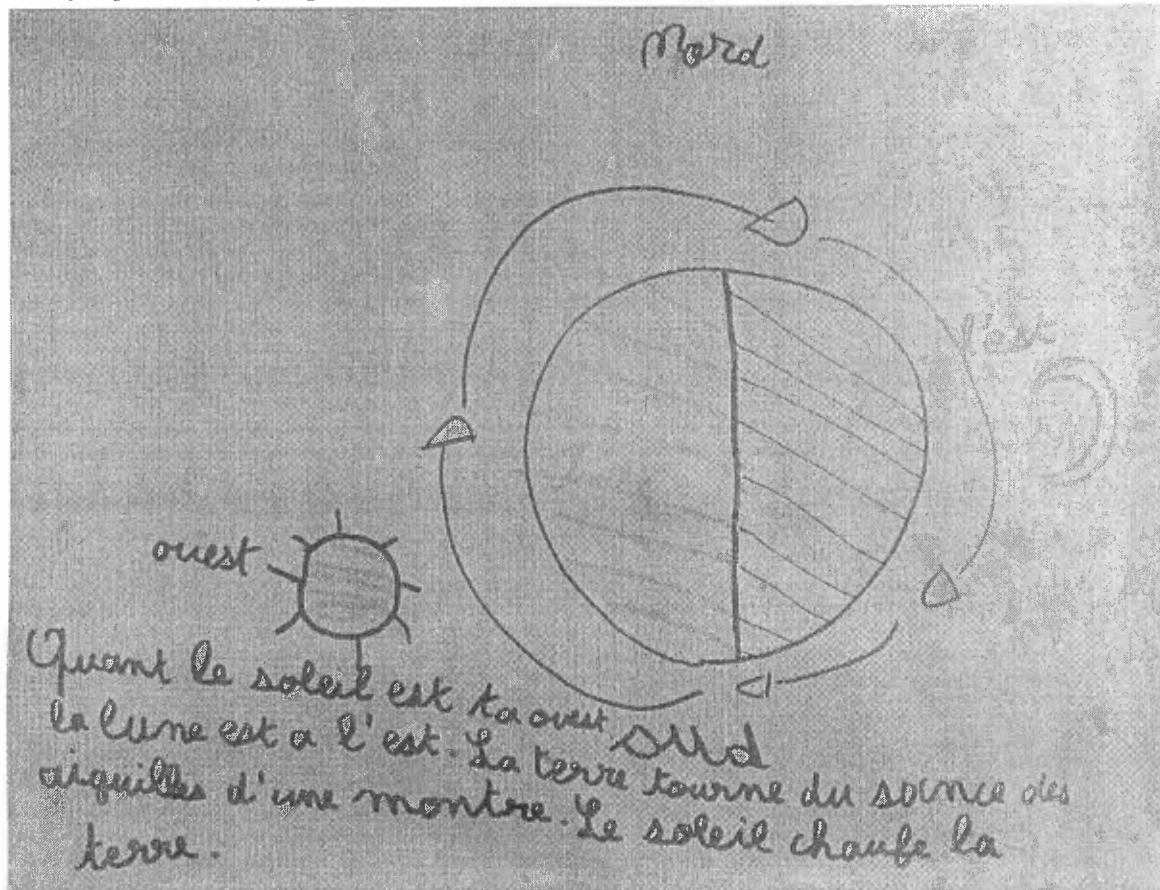 Nord
l'est
ouest
Quant le soleil est ta ouest
sud
la lune est a l'est. La terre tourne du soince des
aiguilles d'une montre. Le soleil chaufe la
terre.